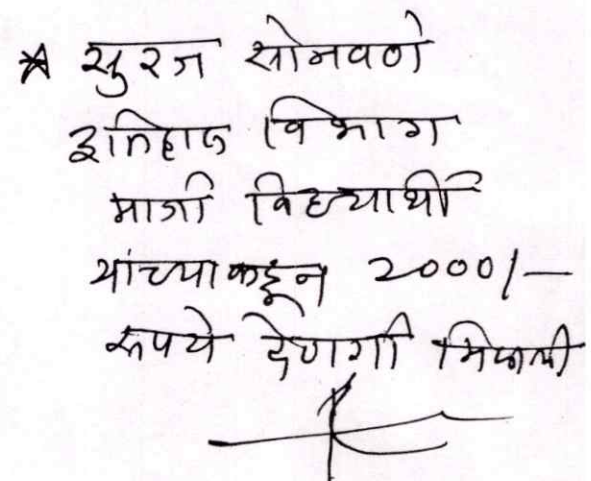 ★ सुरज सोनवणे
इतिहास विभाग
माजी विद्यार्थी
यांच्याकडून 2000/-
रुपये देणगी मिळाली